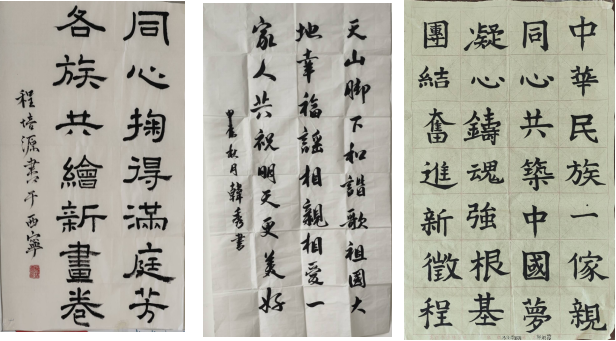 同心掬得滿庭芳
各族共繪新畫卷
程培源書于西寧
天山脚下和諧歌祖國大
地幸福謡相親相愛一
家人共祝明天更美好
秋月韓秀書
中華民族一傢親
同心共築中國夢
凝心鑄魂強根基
團結奮進新徵程